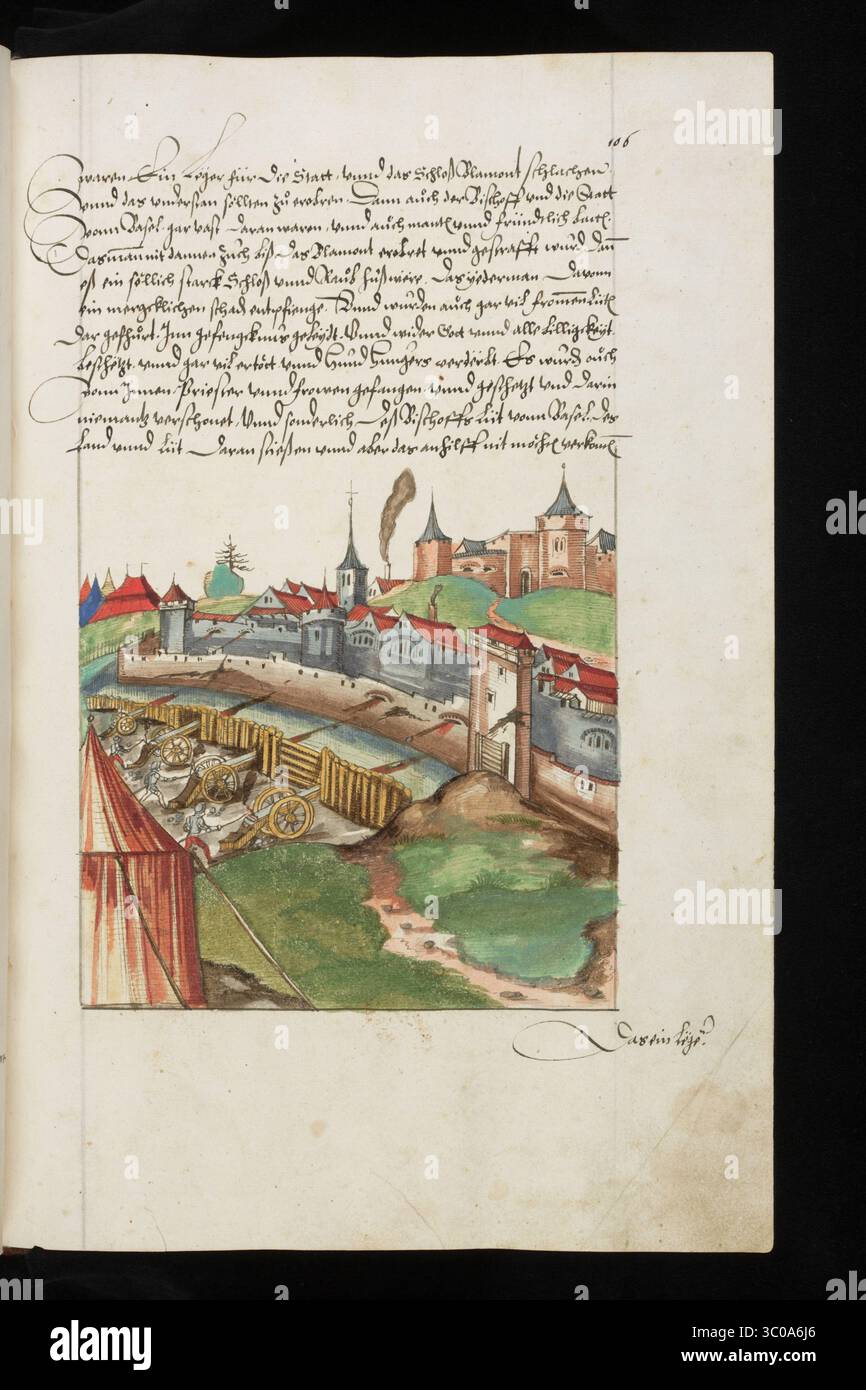 106
waren Ein Leger für die Statt, vnnd das Schloß Blamont schlachen
vnnd das vnderstan söllten zů erobren. Dann auch der Bischoff vnd die Statt
vonn Basel gar vast daran waren, vnnd auch mantl vnnd fründtlich batt
Das man nit dannen zuch biß das Blamont erobret vnnd gestrafft wurd, dan
es ein söllich starck Schloß vnnd Raub huß were, das yederman Daruon
ein mercklichen schad entpfienge, Unnd wurden auch gar vil frommen Lüt
Dar gefhürt, Inn gefengcknus geleydt, Vnnd wider Gott vnnd alle billigkeyt
beschetzt, vnnd gar vil ertödt vnnd hungers verderbt. Es wurdē ouch
vonn Innen Priester vnnd frowen gefangen, vnnd geschetzt vnd darin
niemantz verschonet, Vnnd sonderlich deß Bischoffs Lüt vonn Basel, des
Land vnnd Lüt daran stießen vnnd aber das anhilff nit mochtē verkomē
Das ein lege
alamy
Image ID: 3C0A6J6
www.alamy.com